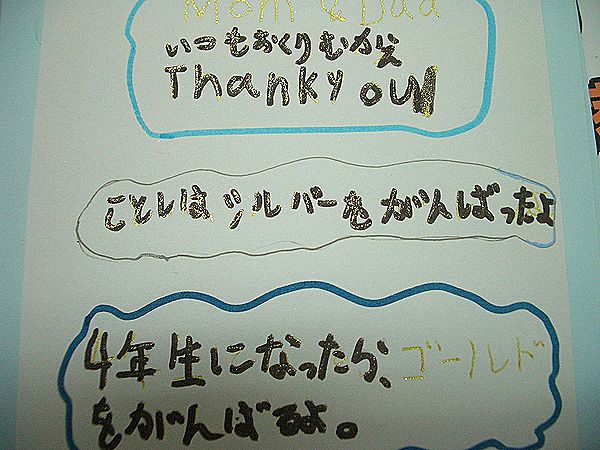 Mom & Dad
いつもおくりむかえ
Thank you
ことしはシルバーをがんばったよ
4年生になったら、ゴールド
をがんばるよ。